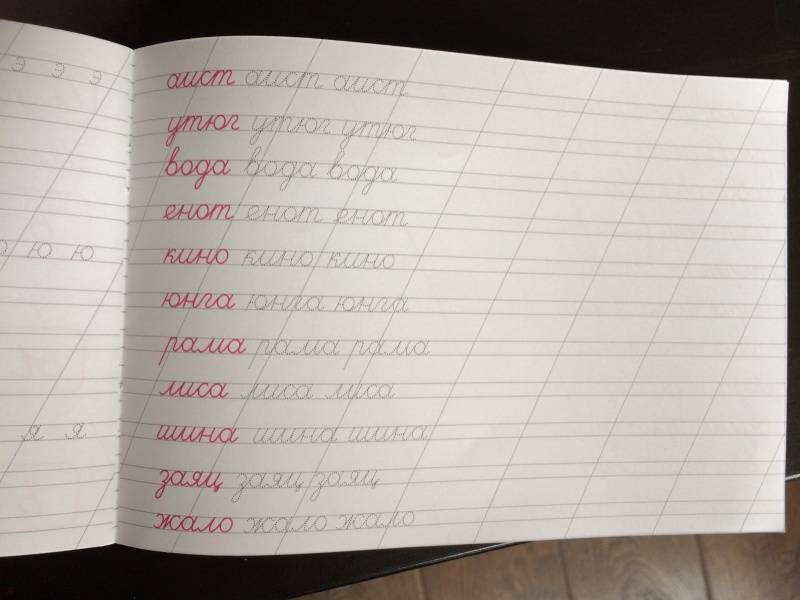 э э э
ю ю
я я
аист аист аист
утюг утюг утюг
вода вода вода
енот енот енот
кино кино кино
юнга юнга юнга
рама рама рама
лиса лиса лиса
шина шина шина
заяц заяц заяц
жало жало жало